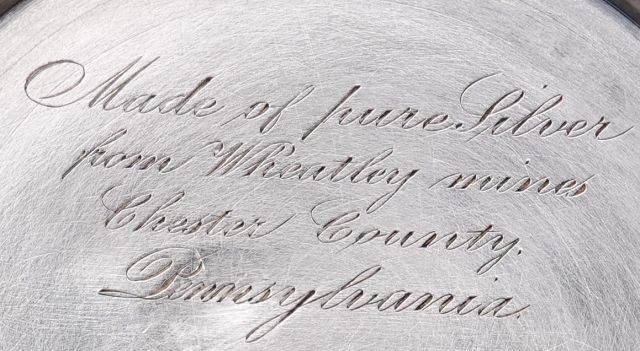 Made of pure Silver
from Wheatley mines
Chester County.
Pennsylvania.